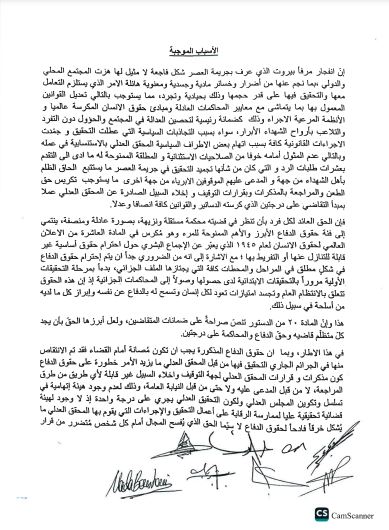 الأسباب الموجبة
إنّ انفجار مرفأ بيروت الذي عرف بجريمة العصر شكل فاجعة لا مثيل لها هزت المجتمع المحلي
والدولي ،بما نجم عنها من أضرار وخسائر مادية وجسدية ومعنوية هائلة الأمر الذي يستلزم التعامل
معها والتحقيق فيها على قدر حجمها وذلك بحيادية وتجرد، مما يستوجب بالتالي تعديل القوانين
المعمول بها بما يتماشى مع معايير المحاكمات العادلة ومبادئ حقوق الانسان المكرسة عالميا و
الأنظمة المرعية الاجراء وذلك كضمانة رئيسية لتحصين العدالة في المجتمع والحؤول دون التفرد
والتلاعب بأرواح الشهداء الأبرار، سواء بسبب التجاذبات السياسية التي عطلت التحقيق و جمدت
الاجراءات القانونية كافة بسبب اتهام بعض الاطراف السياسية المحقق العدلي بالاستنسابية في عمله
وبالتالي عدم المثول أمامه خوفا من الصلاحيات الاستثنائية و المطلقة الممنوحة له ما ادى الى التقدم
بعشرات طلبات الرد و التي كان من شأنها تجميد التحقيق في جريمة العصر ما يستتبع الحاق الظلم
بأهل الشهداء من جهة و المدعى عليهم الموقوفين الابرياء من جهة اخرى. ما يستوجب تكريس حق
الطعن والمراجعة بالمذكرات وبقرارات التوقيف و إخلاء السبيل الصادرة عن المحقق العدلي عملا
بمبدأ التقاضي على درجتين الذي كرسته الدساتير والقوانين كافة انصافا وعدلا.
فإن الحق العائد لكل فرد بأن تنظر في قضيته محكمة مستقلة ونزيهة، بصورة عادلة ومنصفة، ينتمي
إلى فئة حقوق الدفاع الأبرز والأهم الممنوحة للمرء وهو مُكرس في المادة العاشرة من الاعلان
العالمي لحقوق الانسان لعام ١٩٤٥ الذي يعبّر عن الإجماع البشري حول احترام حقوق أساسية غير
قابلة للتنازل عنها أو التفريط بها ؛ مع الاشارة إلى انه من الضروري جداً ان يتم إحترام حقوق الدفاع
في شكل مطلق في المراحل والمحطات كافة التي يجتازها الملف الجزائي، بدءاً بمرحلة التحقيقات
الأولية مروراً بالتحقيقات الابتدائية لدى حصولها وصولاً إلى المحاكمات الجزائية إذ إن هذه الحقوق
تتعلق بالانتظام العام وتجسد امتيازات تعود لكل إنسان وتسمح له بالدفاع عن نفسه وإبراز كل ما لديه
من أسلحة في سبيل ذلك.
هذا وإنّ المادة ٢٠ من الدستور تنصّ صراحةً على ضمانات المتقاضين، ولعل أبرزها الحق بأن يجد
كلّ متظلّم قاضيه وحق الدفاع والمحاكمة على درجتين.
في هذا الاطار، وبما ان حقوق الدفاع المذكورة يجب ان تكون مُصانة أمام القضاء فقد تم الانتقاص
منها في الجرائم الجاري التحقيق فيها من قبل المحقق العدلي ما يزيد الأمر خطورة على حقوق الدفاع
كون مذكرات و قرارات المحقق العدلي لجهة التوقيف واخلاء السبيل غير قابلة لأي طريق من طرق
المراجعة، لا من قبل المدعى عليه ولا حتى من قبل النيابة العامة، وذلك لعدم وجود هيئة إتهامية في
تسلسل وتكوين المجلس العدلي ولكون التحقيق العدلي يجري على درجة واحدة إذ لا وجود لهيئة
قضائية تحقيقية عليا لممارسة الرقابة على أعمال التحقيق والإجراءات التي يقوم بها المحقق العدلي ما
يُشكل خرقاً فادحاً لحقوق الدفاع لا سيّما الحق الذي يُفسح المجال أمام كل شخص مُتضرر من قرار
CS CamScanner